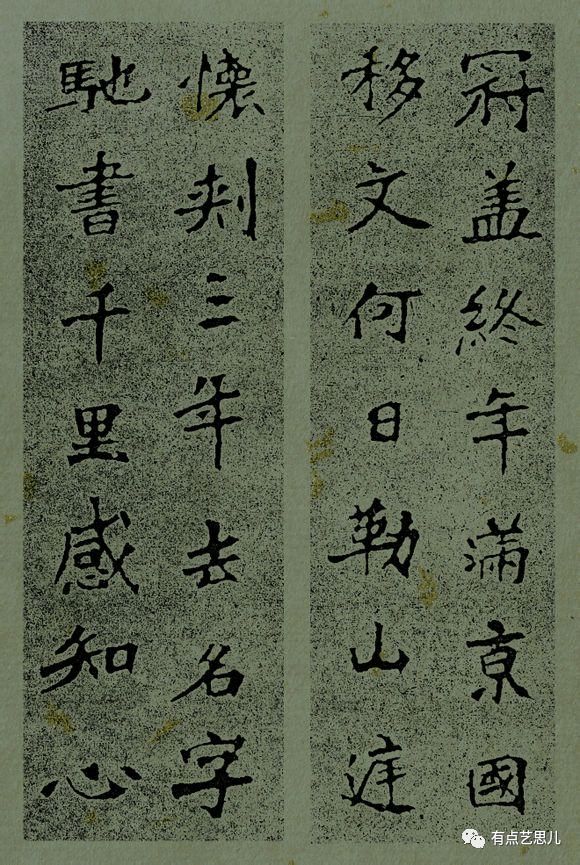 冠盖終年滿京國
移文何日勒山庭
懷刺三年去名字
馳書千里感知心
有点艺思儿